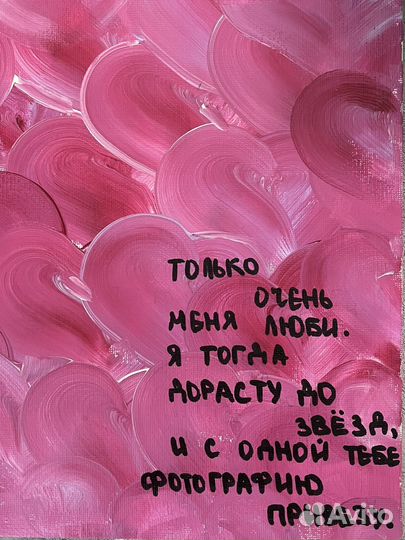 только
очень
меня люби.
Я тогда
дорасту до
звёзд,
и с одной тебе
фотографию
Avito